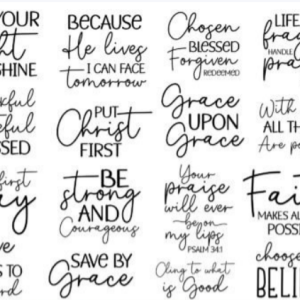 YOUR
ght
SHINE
BECAUSE
He lives
I CAN FACE
tomorrow
Chosen
BLESSED
Forgiven
REDEEMED
LIFE
frag
HANDLE
pra
kful
eful
SSED
PUT
Christ
FIRST
Grace
UPON
Grace
With
ALL TH
Are po
first
ay
BE
strong
AND
Courageous
Your
praise
will ever
be on
my lips
PSALM 34:1
Fai
MAKES AL
POSSI
ve
S TO
rd
SAVE BY
Grace
Cling to what
is Good
choose
BELI